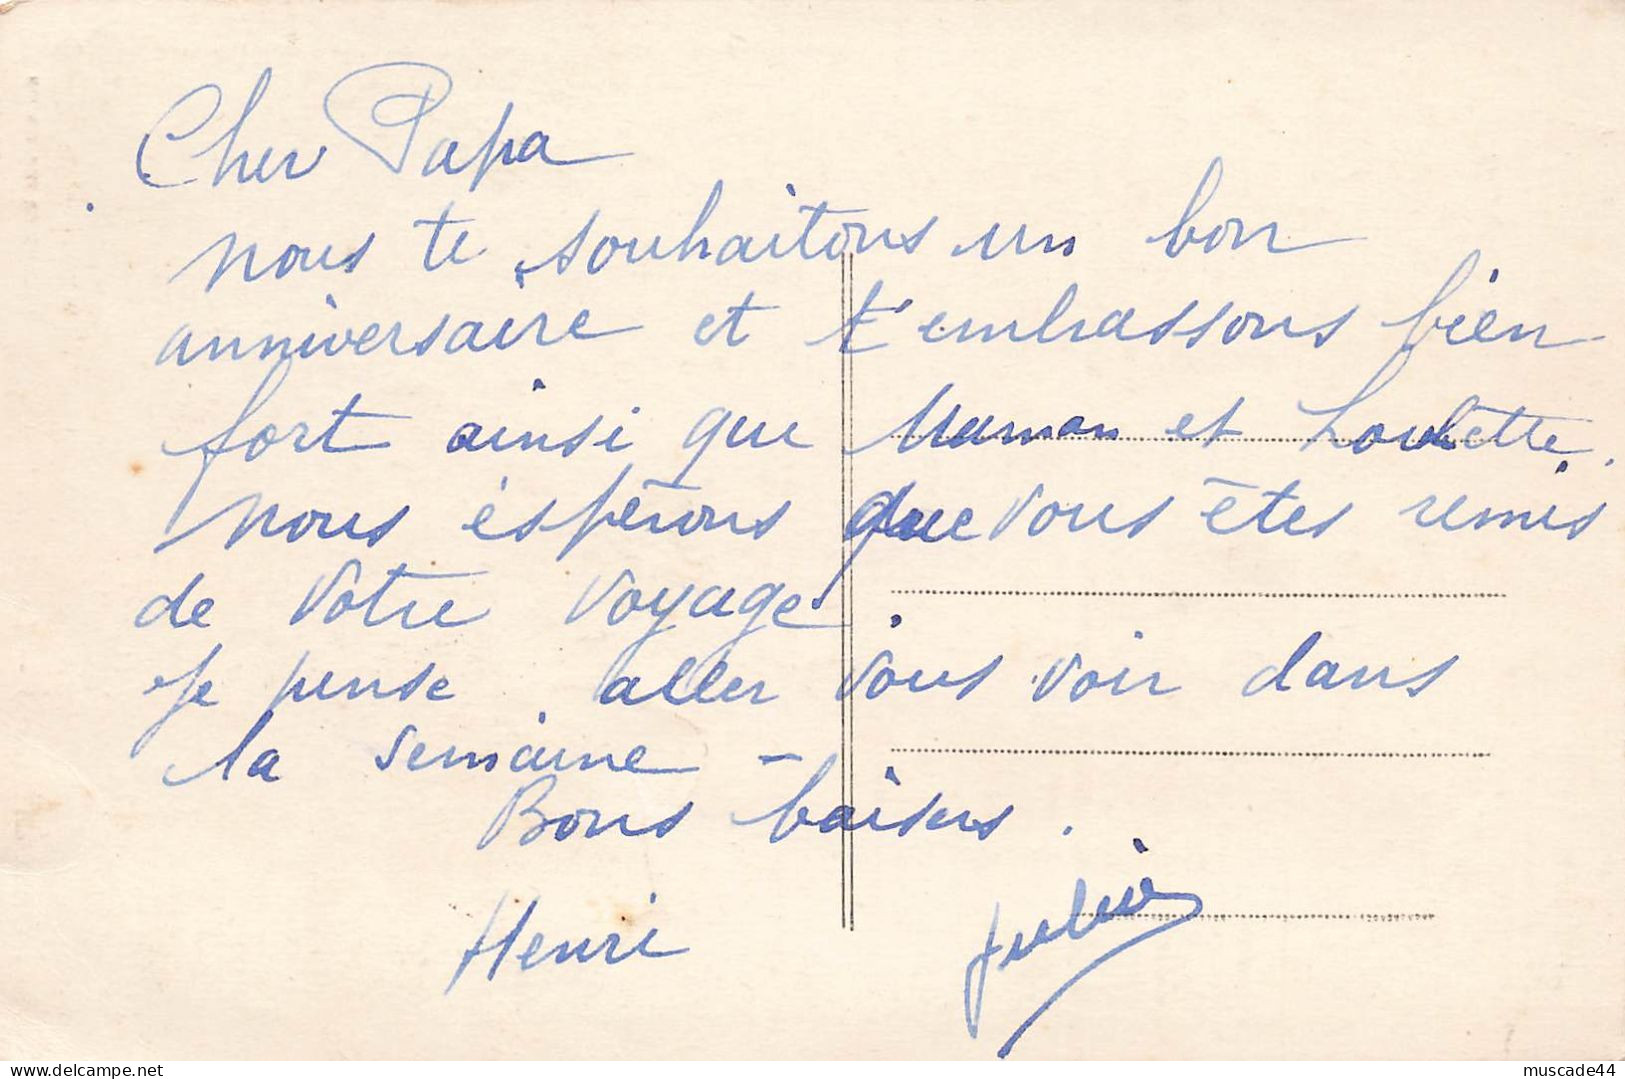 Cher Papa
nous te souhaitons un bon
anniversaire et t'embrassons bien
fort ainsi que Maman et Loulette.
nous éspérons que vous êtes remis
de votre voyage
Je pense aller vous voir dans
la semaine -
Bons baisers.
Henri
muscade44